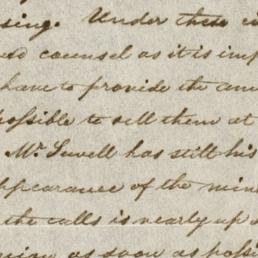 sing. Under these
counsel as it is imp
have to provide the am
possible to sell them at
Mr. Sewell has still his
appearance of the min
the calls is nearly up
as soon as possi